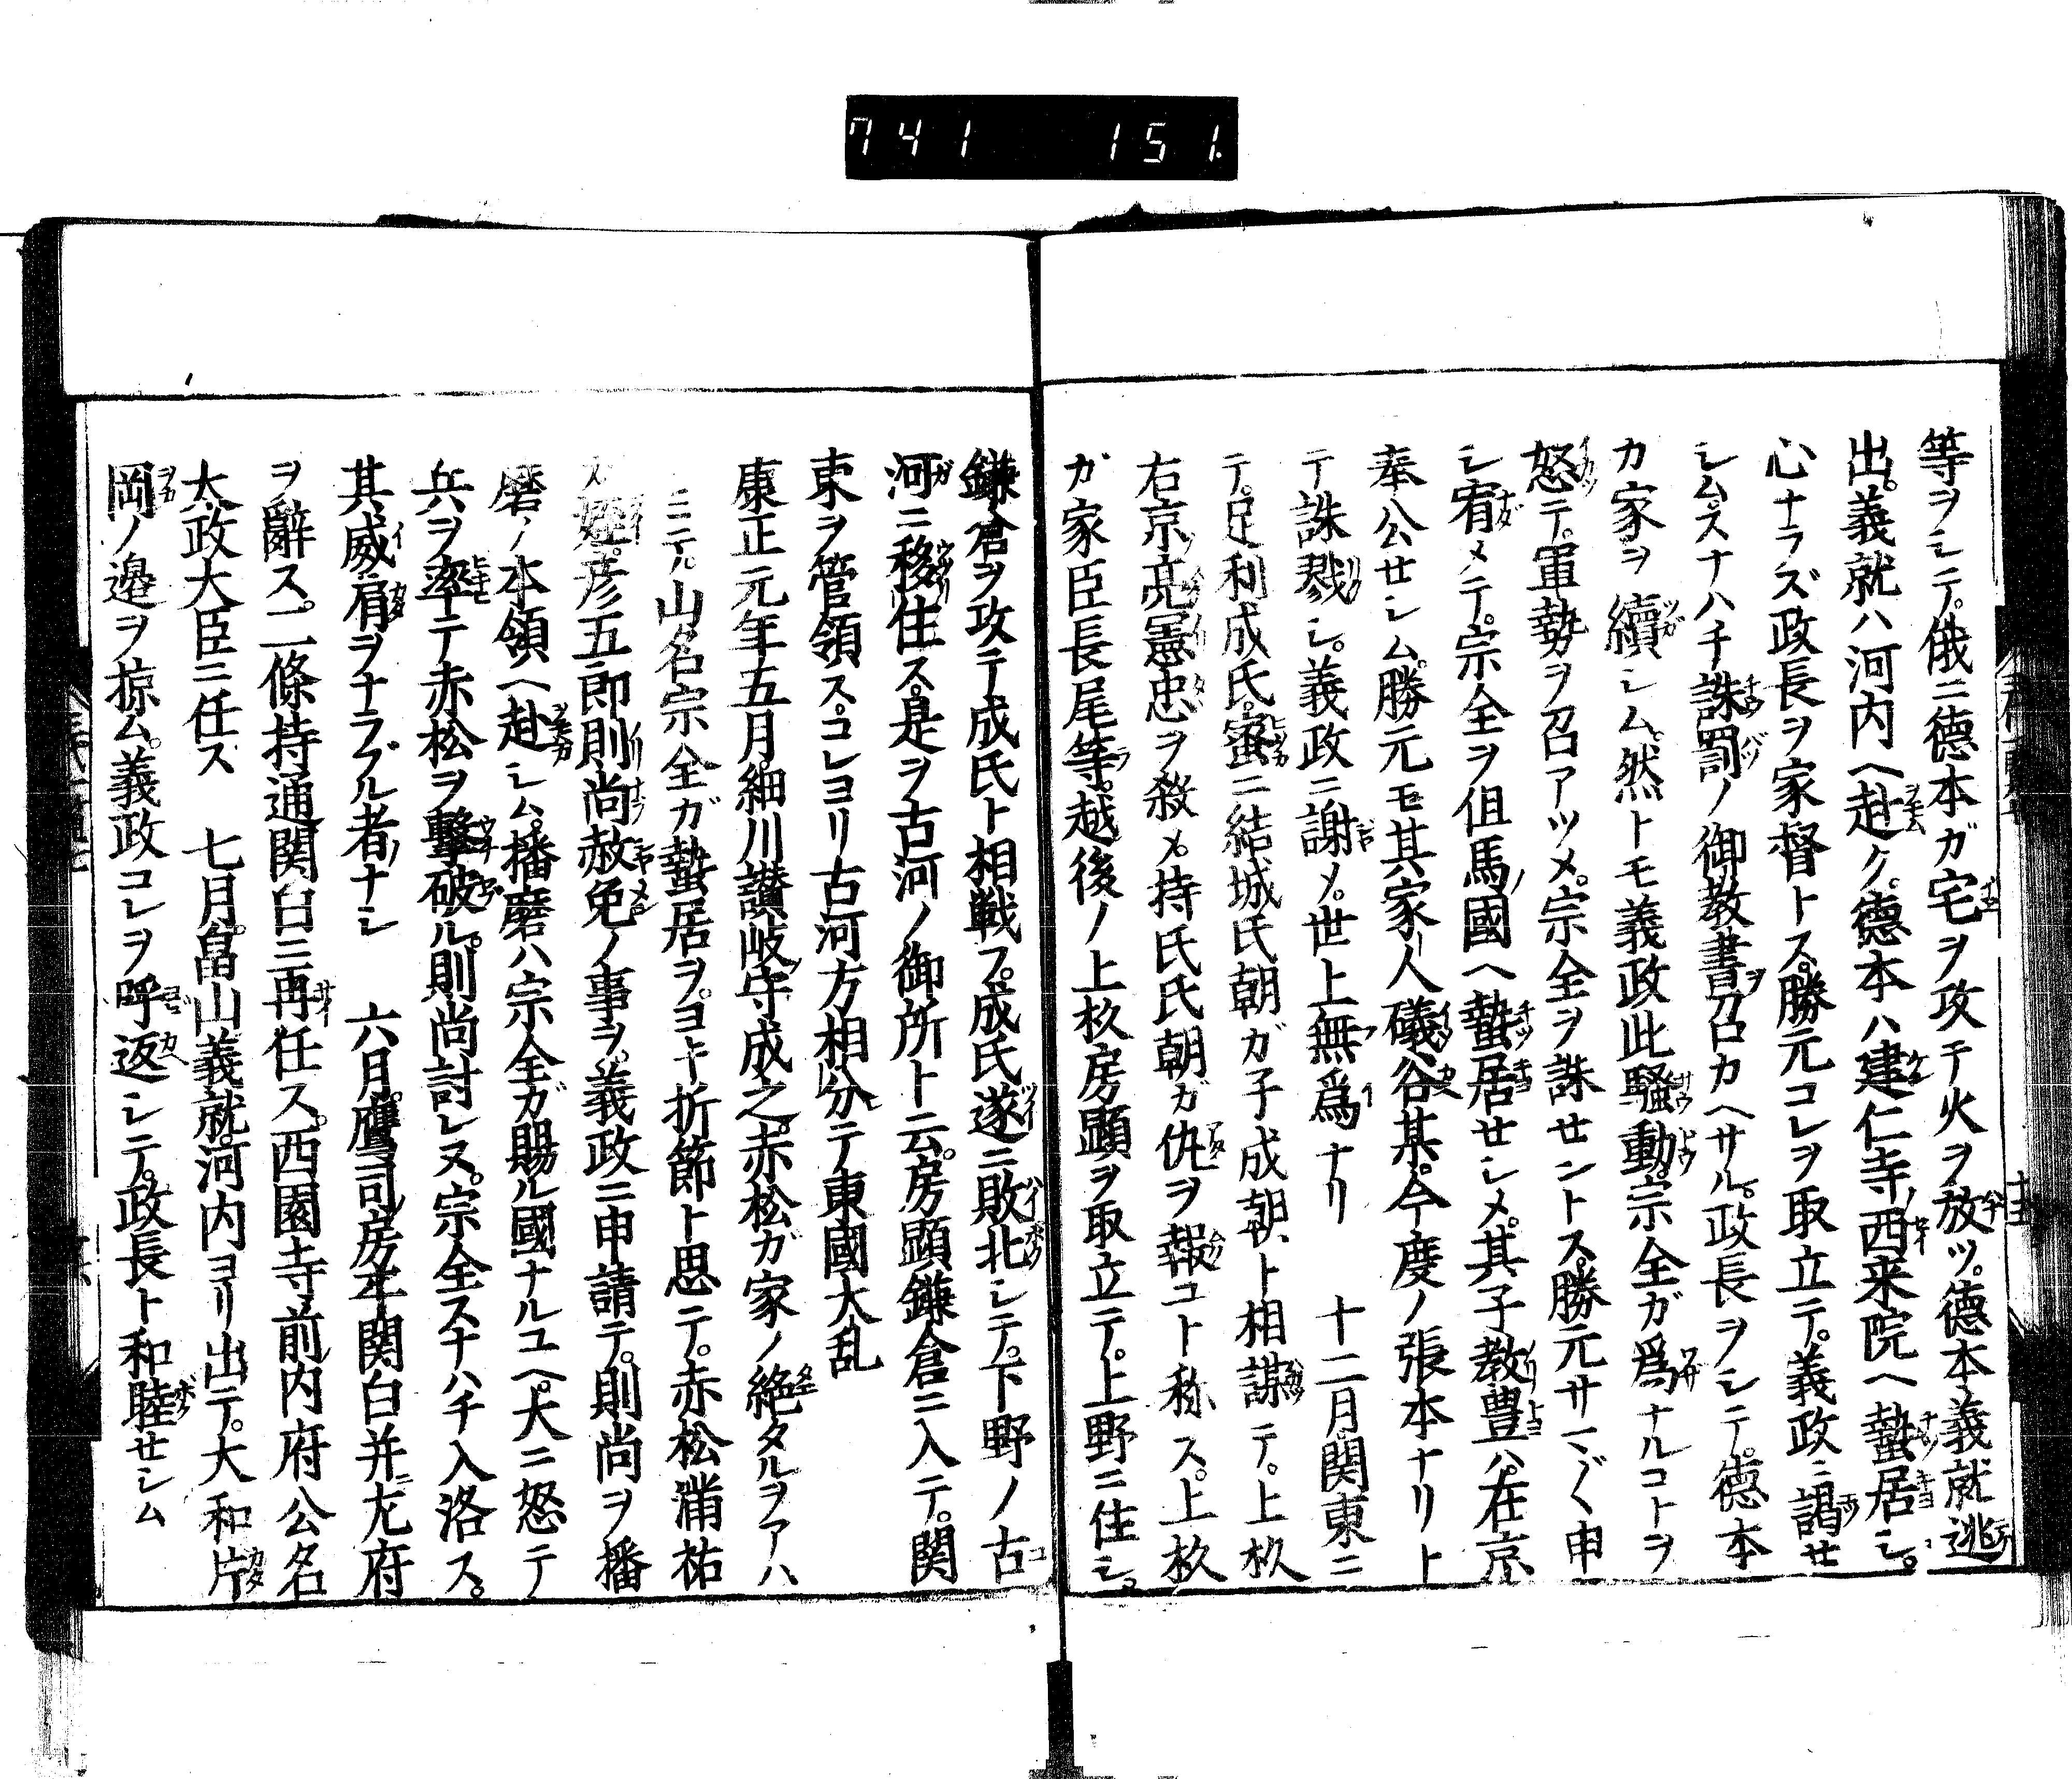 741 151.
等ヲシテ。俄ニ德本ガ宅ヲ攻テ火ヲ放ツ。德本義就逃
出。義就ハ河内ヘ赴ク。德本ハ建仁寺ノ西来院ヘ蟄居シ。
心ナラズ政長ヲ家督トス。勝元コレヲ取立テ。義政ニ謁せ
シム。スナハチ誅罰ノ御教書ヲ召カヘサル。政長ヲシテ。德本
カ家ヲ續シム。然トモ義政此騷動。宗全ガ爲ナルコトヲ
怒テ。軍勢ヲ召アツメ。宗全ヲ誅せントス。勝元サマ〲申
シ宥メテ。宗全ヲ但馬ノ國ヘ蟄居せシメ。其子教豊ハ。在京
奉公せシム。勝元モ其家人礒谷某。今度ノ張本ナリト
テ誅戮シ。義政ニ謝メ。世上無爲ナリ　十二月関東ニ
テ。足利成氏。蜜ニ結城氏朝ガ子成朝ト相謀テ。上杦
右京ノ亮憲忠ヲ殺メ。持氏氏朝ガ仇ヲ報コト称ス。上杦
ガ家臣長尾等。越後ノ上杦房顕ヲ取立テ。上野ニ住シ。
鎌倉ヲ攻テ成氏ト相戦フ。成氏遂ニ敗北シテ。下野ノ古
河ニ移住ス。是ヲ古河ノ御所ト云。房顕鎌倉ニ入テ。関
東ヲ管領ス。コレヨリ古河方相分テ東國大乱
康正元年五月細川讃岐守成之。赤松ガ家ノ絶タルヲアハ
ミテ。山名宗全ガ蟄居ヲ。ヨキ折節ト思テ。赤松滿祐
カ姪。彦五郎則尚赦免ノ事ヲ。義政ニ申請テ。則尚ヲ播
磨ノ本領ヘ赴シム。播磨ハ宗全ガ賜ル國ナルユヘ。大ニ怒テ
兵ヲ率テ赤松ヲ擊破ル。則尚討レヌ。宗全スナハチ入洛ス。
其威肩ヲナラブル者ナシ　六月。鷹司ノ房平関白并ニ左府
ヲ辭ス。二條持通関白ニ再任ス。西園寺前ノ内府公名
太政大臣ニ任ス　七月。畠山義就。河内ヨリ出テ。大和片
岡ノ邉ヲ掠ム。義政コレヲ呼返シテ。政長ト和睦せシム